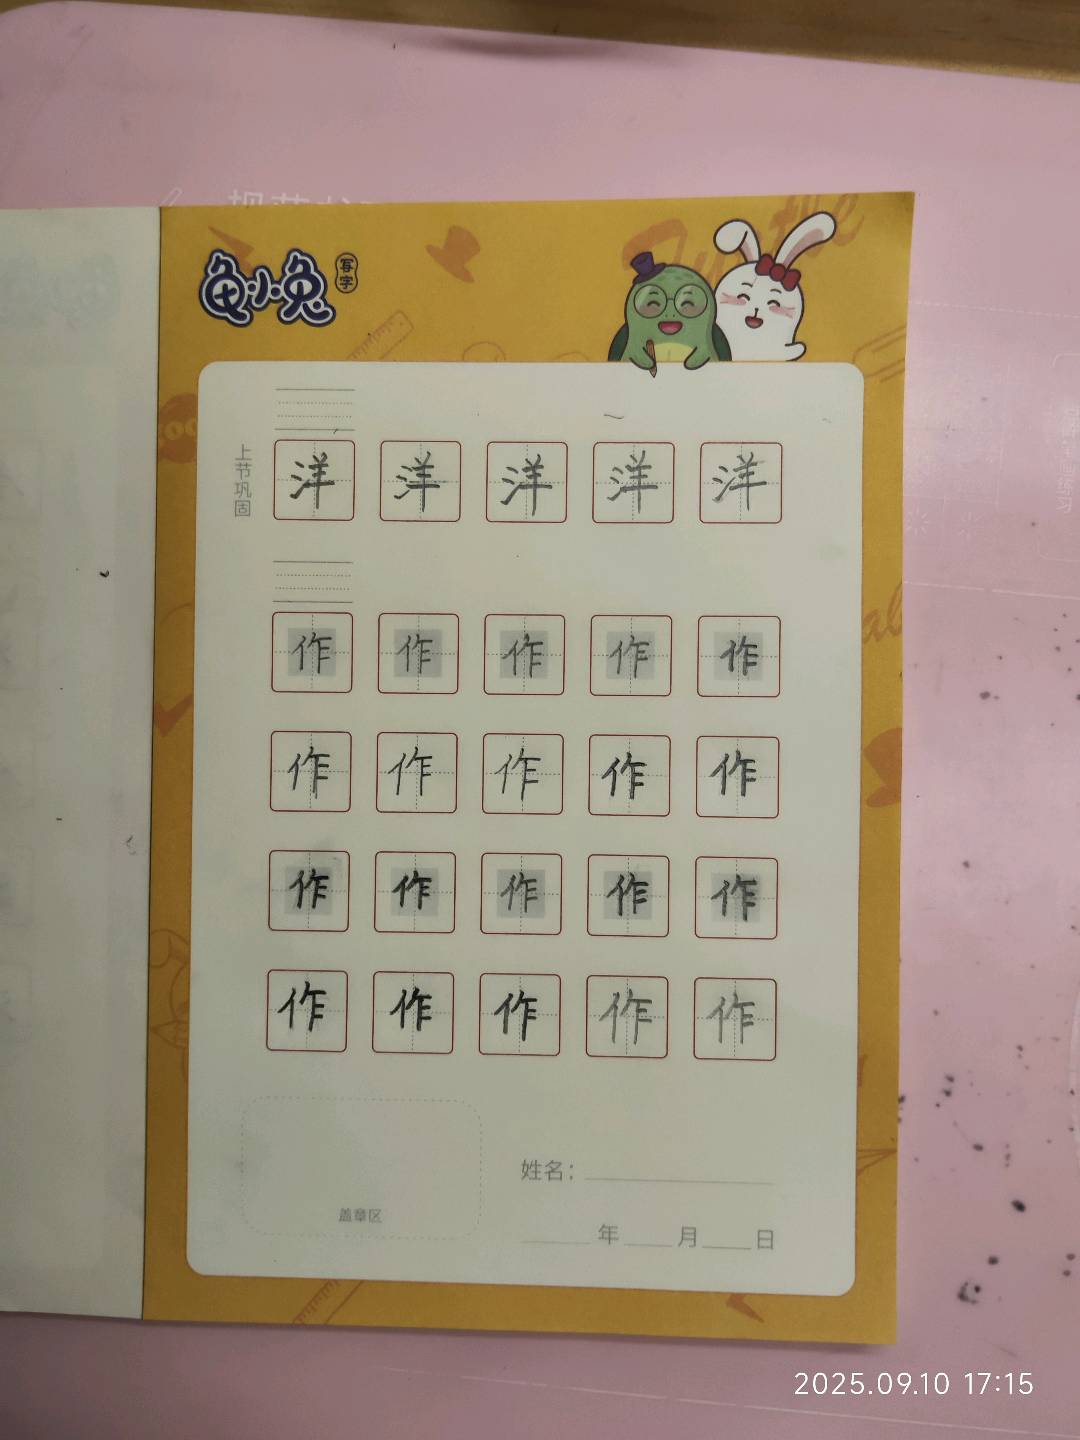 龟小兔
写字
上节巩固
洋 洋 洋 洋 洋
作 作 作 作 作
作 作 作 作 作
作 作 作 作 作
作 作 作 作 作
姓名：
盖章区
年 月 日
2025.09.10 17:15